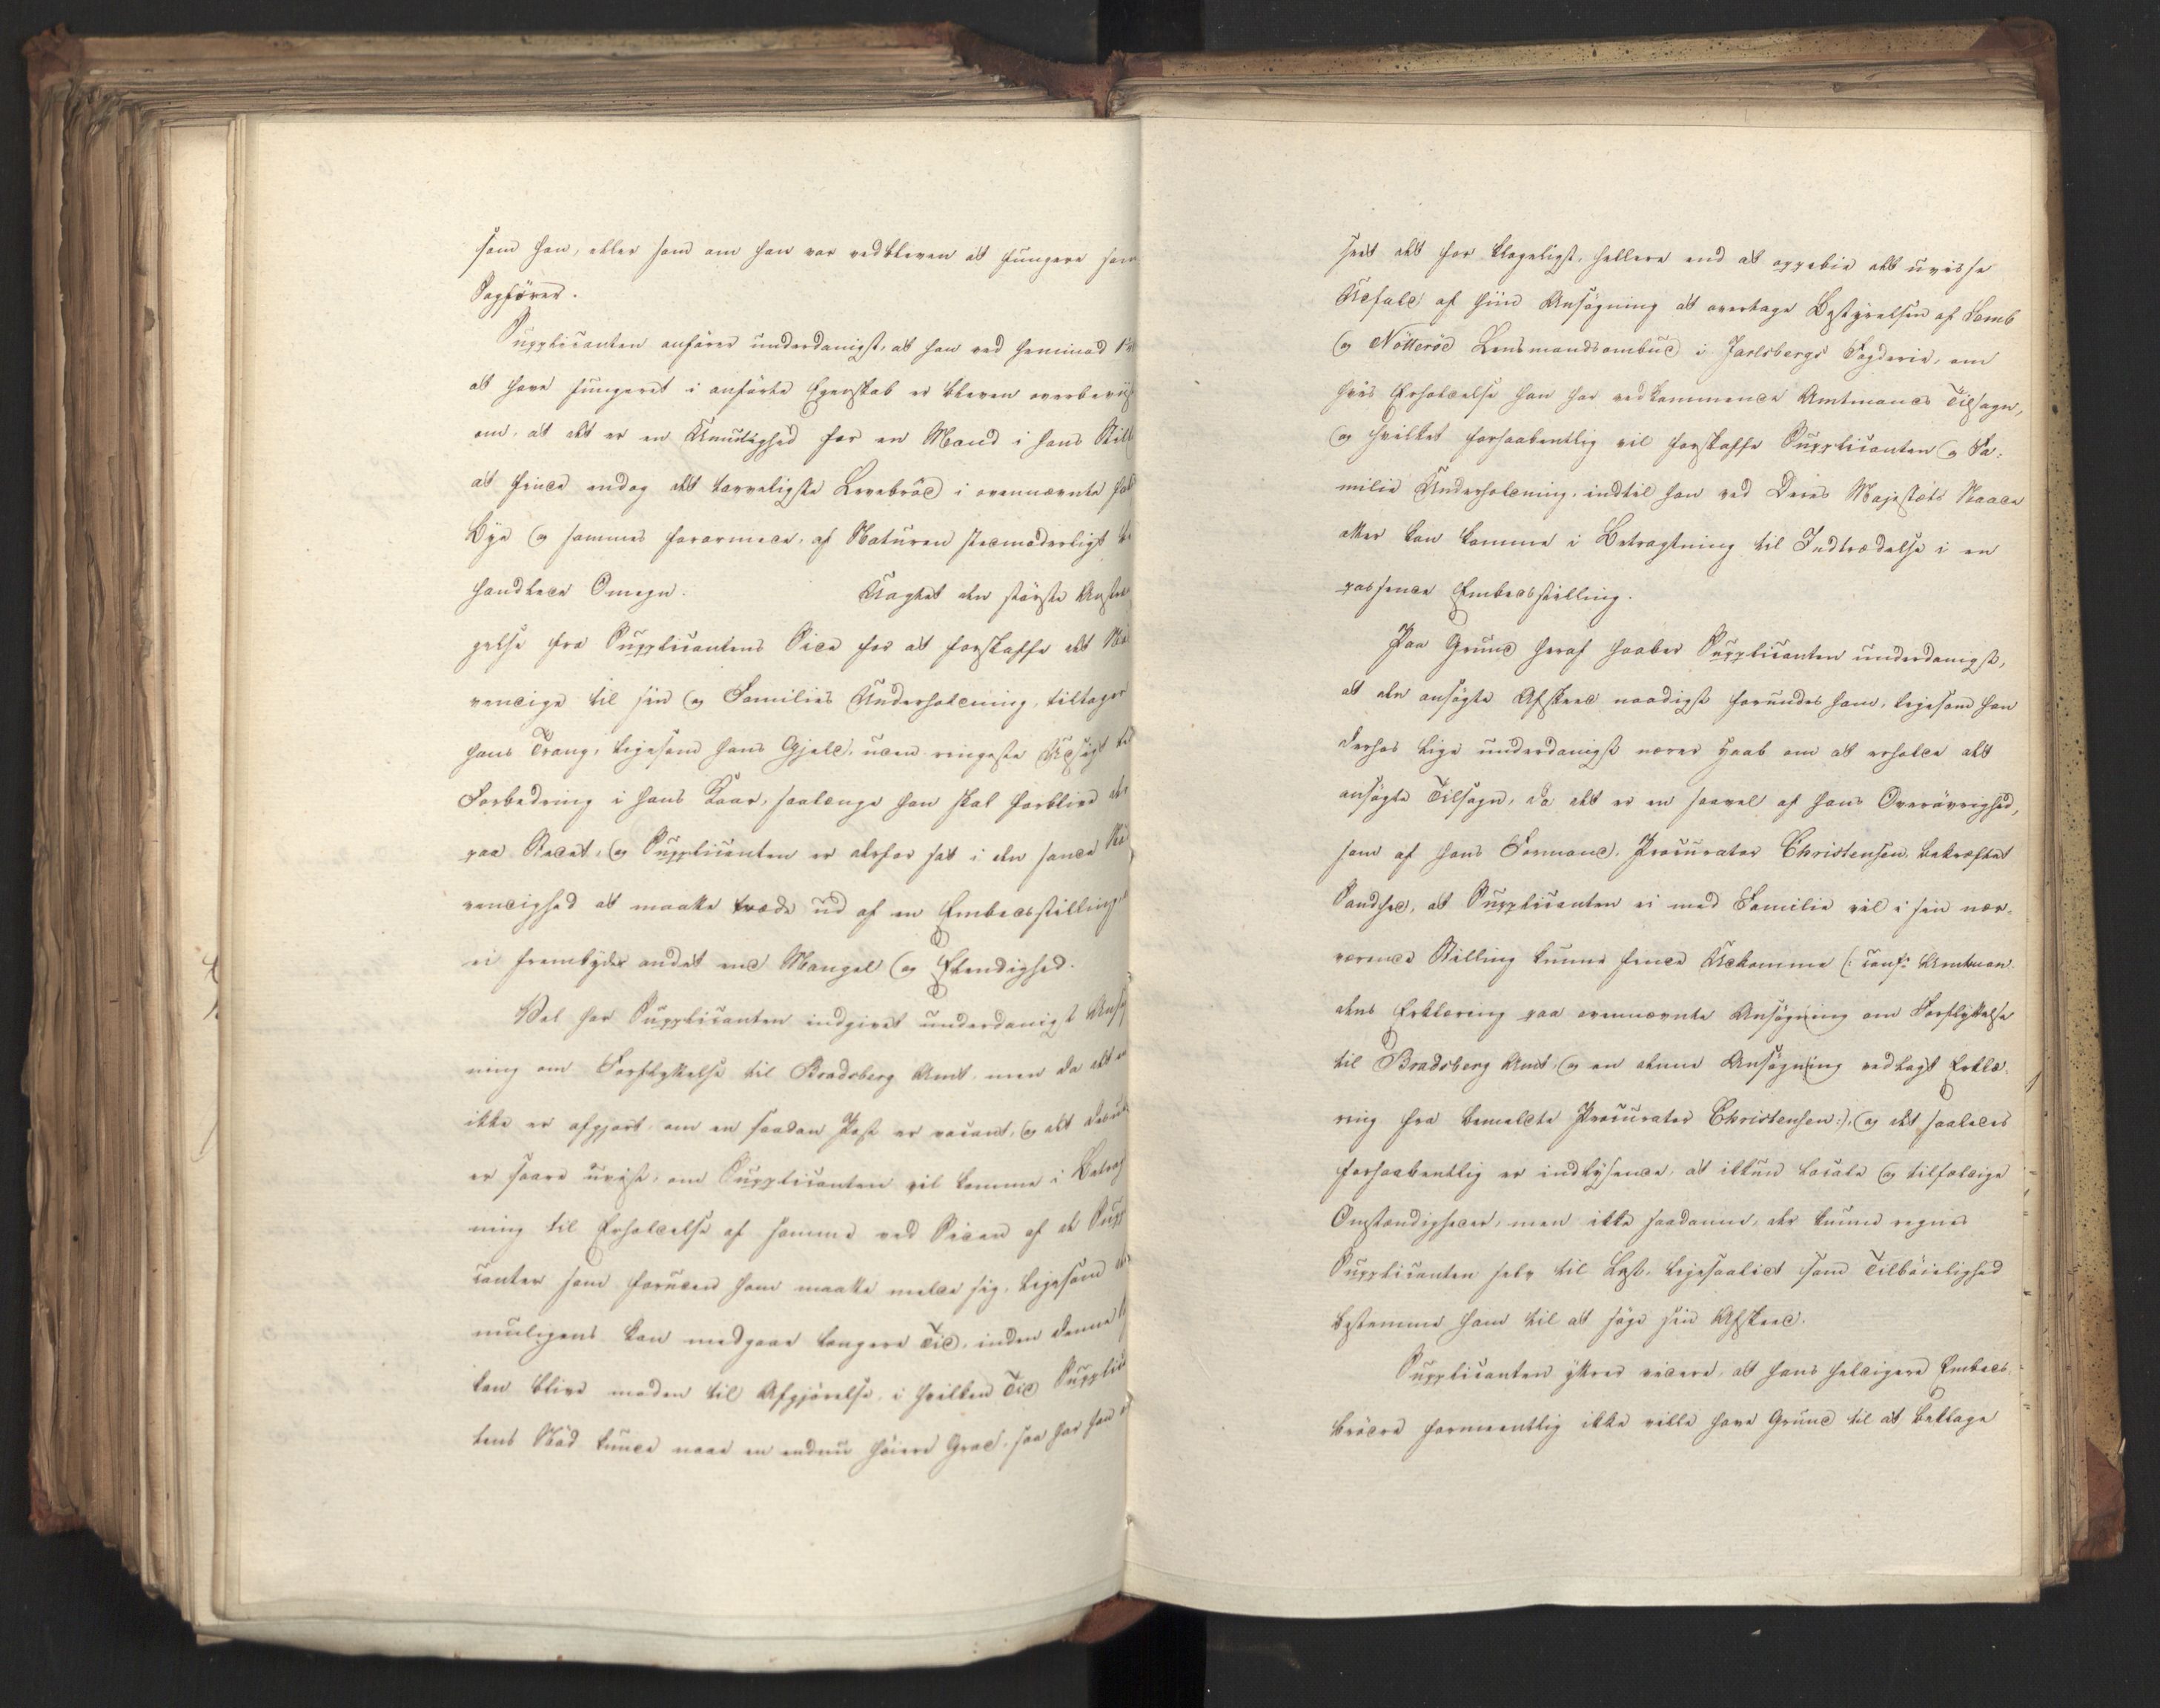 som han, eller som om han var vedbleven at fungere som
Sagfører.
Supplicanten anfører underdanigst, at han ved henimod
at have fungeret i anførte Egenskab er bleven overbeviist
om, at det er en Umulighed for en Mand i hans Still
at finde endog det tarveligste Levebrød i ovennævnte
Bye og sammes forarmede, af Naturen stedmoderligt be
handlede Omegn. Uagtet den største Anstræn
gelse fra Supplicantens Side for at forskaffe det Nød
vendige til sin og Families Underholdning, tiltager
hans Trang, ligesom hans Gjeld, uden ringeste Udsigt til
Forbedring i hans Kaar, saalænge han skal forblive der
paa Stedet, og Supplicanten er derfor sat i den haarde Nød
vendighed at maatte træde ud af en Embedsstilling,
ei frembyder andet end Mangel og Elendighed.
Vel har Supplicanten indgivet underdanigst Ansøg
ning om Forflyttelse til Bradsberg Amt, men da det end
ikke er afgjort, om en saadan Post er vacant, og det desuden
er saare uvist, om Supplicanten vil komme i Betragt
ning til Erholdelse af samme ved Siden af de Suppli
canter som foruden ham maatte melde sig, ligesom der
muligens kan medgaae længere Tid, inden denne
kan blive moden til Afgjørelse, i hvilken Tid Supplican
tens Nød kunde naae en endnu høiere Grad, saa har han
seet det for klogeligst, hellere end at oppebie det uvisse
Udfald af hiin Ansøgning at overtage Bestyrelsen af Semb
og Nötteröe Lensmandsombud i Jarlsbergs Fogderie, om
hvis Erholdelse han har vedkommende Amtmands Tilsagn,
og hvilket forhaabentlig vil forskaffe Supplicanten og Fa-
milie Underholdning, indtil han ved Deres Majestæts Naade
atter kan komme i Betragtning til Indtrædelse i en
passende Embedsstilling.
Paa Grund heraf haaber Supplicanten underdanigst,
at den ansøgte Afskeed naadigst forundes ham, ligesom han
derhos lige underdanigst nærer Haab om at erholde det
ansøgte Tilsagn, da det er en saavel af hans Overøvrighed,
som af hans Formand, Procurator Christensen, bekræftet
Sandhed, at Supplicanten ei med Familie vil i sin nær-
værende Stilling kunne finde Udkomme (: conf: Amtman-
dens Erklæring paa ovennævnte Ansøgning om Forflyttelse
til Bradsberg Amt, og en denne Ansøgning vedlagt Erklæ-
ring fra bemeldte Procurator Christensen:), og det saaledes
forhaabentlig er indlysende, at ikkun locale og tilfældige
Omstændigheder, men ikke saadanne, der kunne regnes
Supplicanten selv til Last, ligesaalidt som Tilbøielighed
bestemme ham til at søge sin Afskeed.
Supplicanten yttrer videre, at hans heldigere Embeds-
brødre formeentlig ikke ville have Grund til at beklage